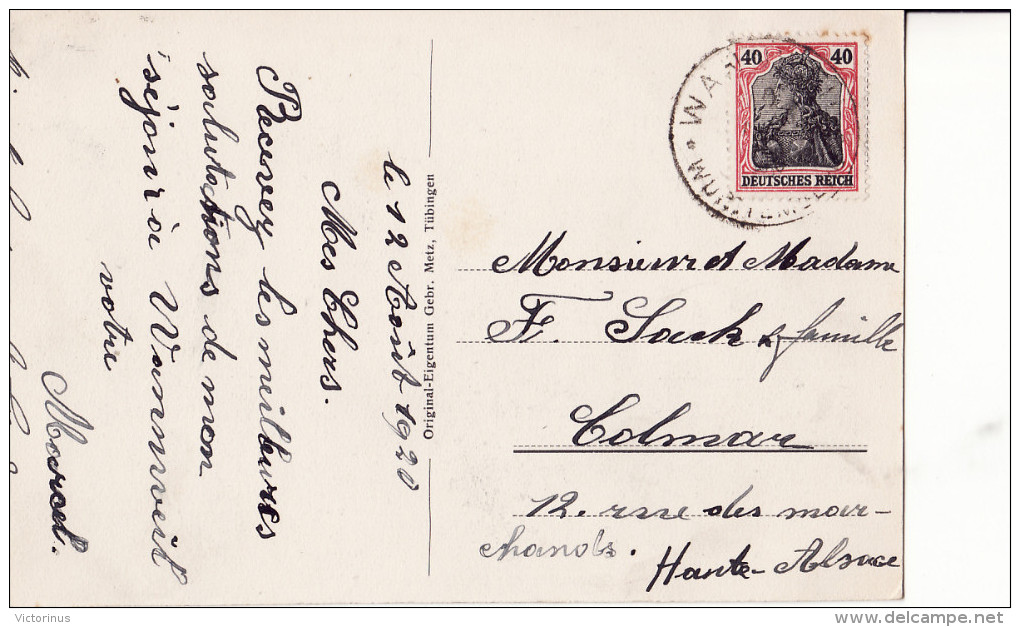 le 12 Août 1920
Mes Chers.
Recevez les meilleures
salutations de mon
séjour à Wannweil
votre
Marcel.
Original-Eigentum Gebr. Metz, Tübingen
40 40
DEUTSCHES REICH
* WA
WÜRTT
Monsieur et Madame
F. Sack & famille
Colmar
12. rue des mar-
chands.
Haute-Alsace
Victorinus
delcampe.net